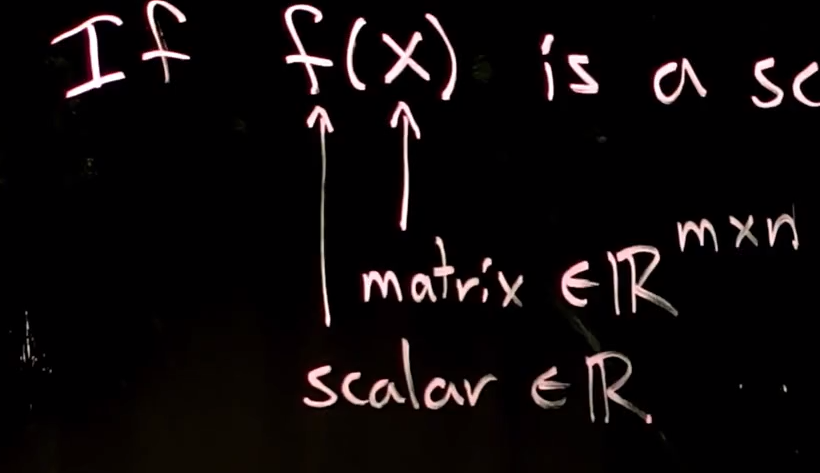 If f(x) is a sc
matrix ∈ ℝ^{m×n}
scalar ∈ ℝ